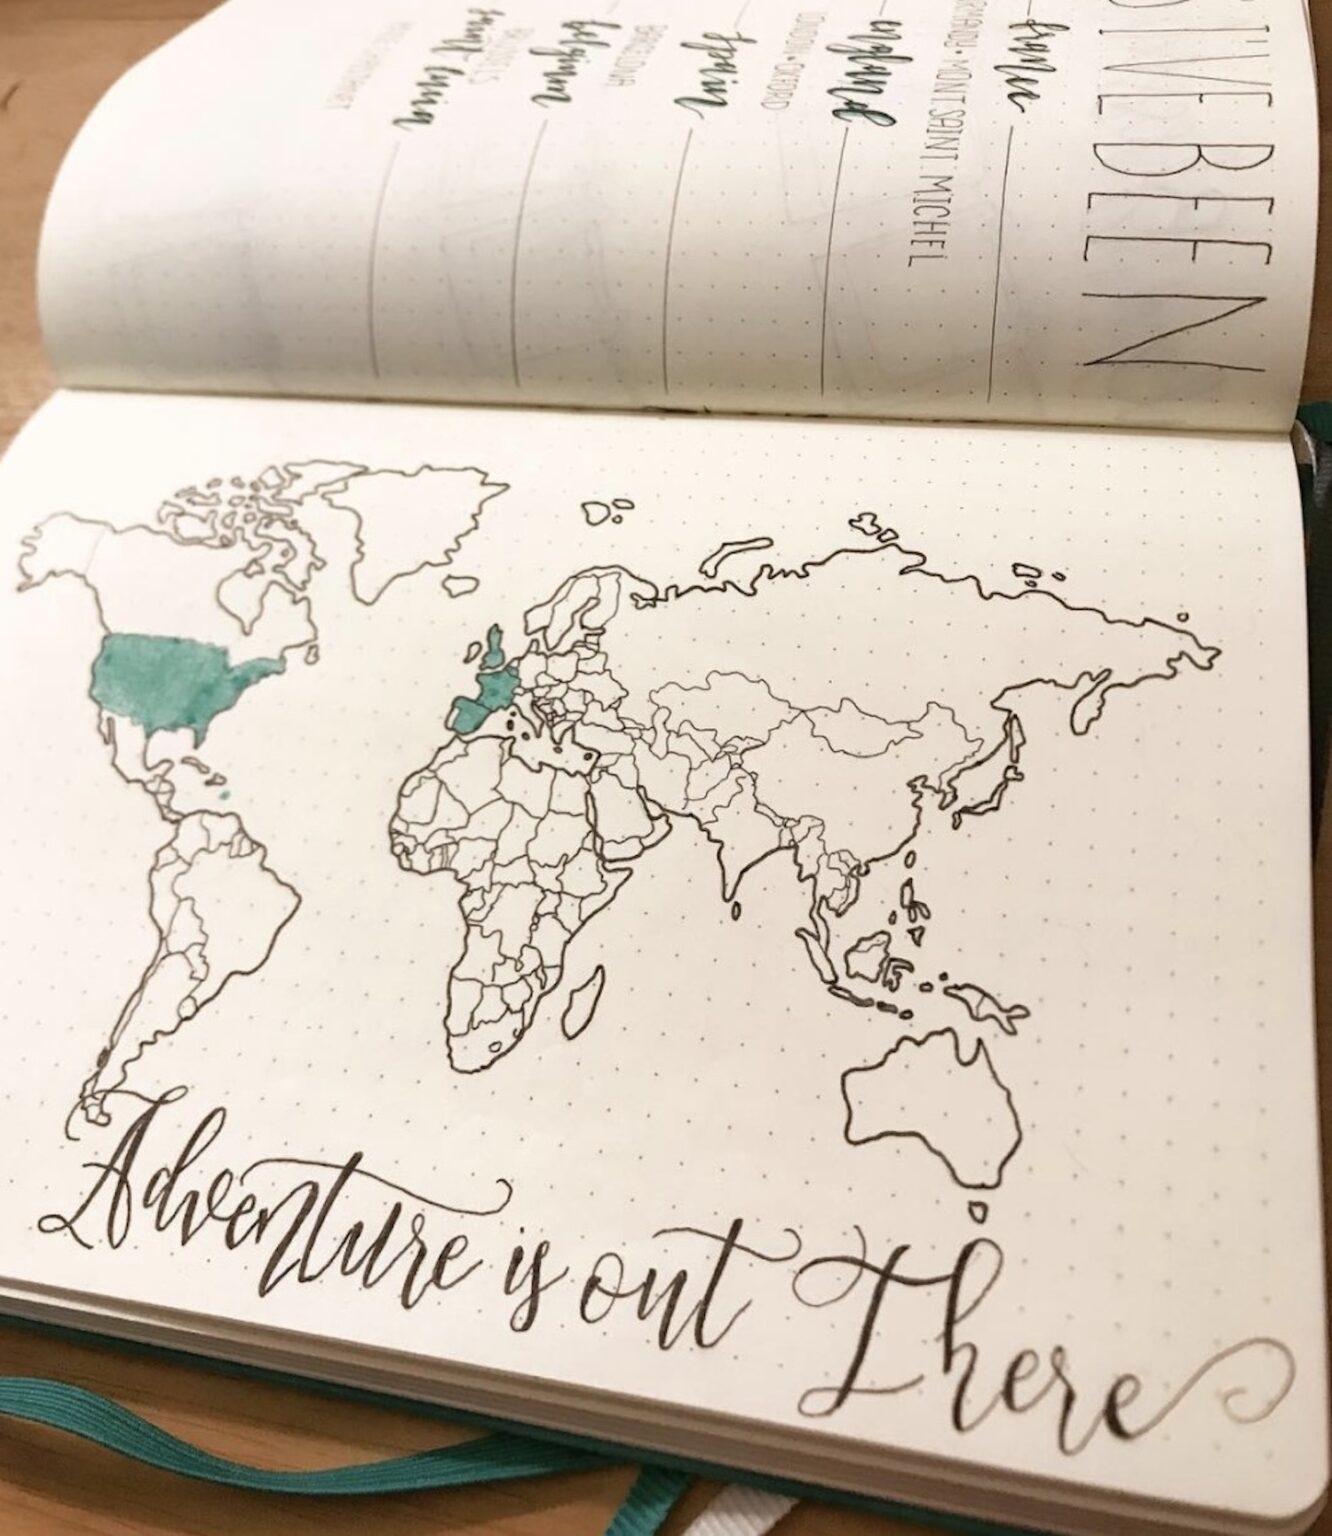 S I'VE BEEN
france
RMANDY • MONT SAINT MICHEL
england
LONDON • OXFORD
Spain
BARCELONA
belgium
BRUSSELS
saint lucia
Adventure is out There